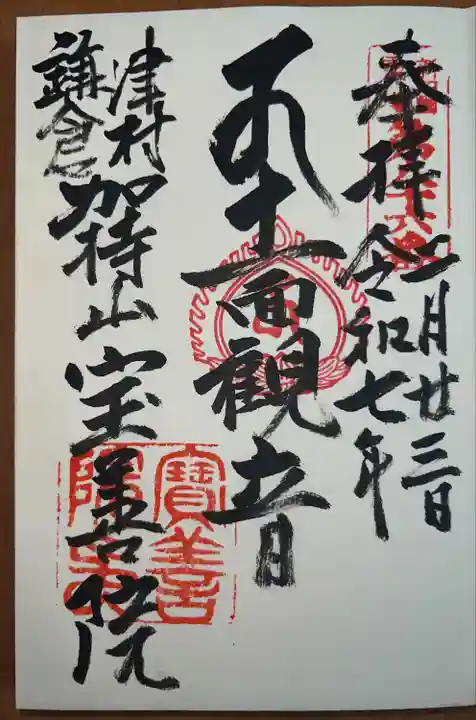 奉拝
令和七年
月廿三日
十一面観音
鎌倉
津村
加持山宝善院
寶善